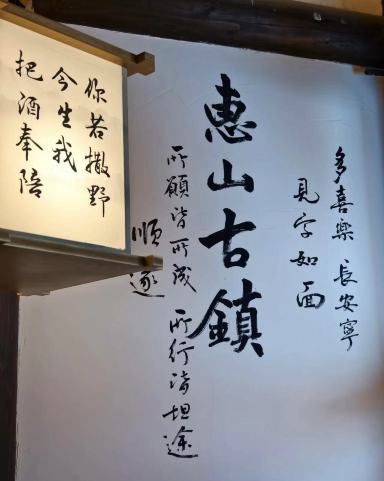 多喜樂 長安寧
見字如面
惠山古鎮
所願皆所成 所行皆坦途
順遂
你若撒野
今生我
把酒奉陪